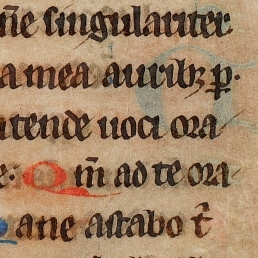 n̄e singulariter
a mea auribꝫ ꝑ·
ntende uoci ora
e: Qm̄ ad te ora
ane astabo t̄